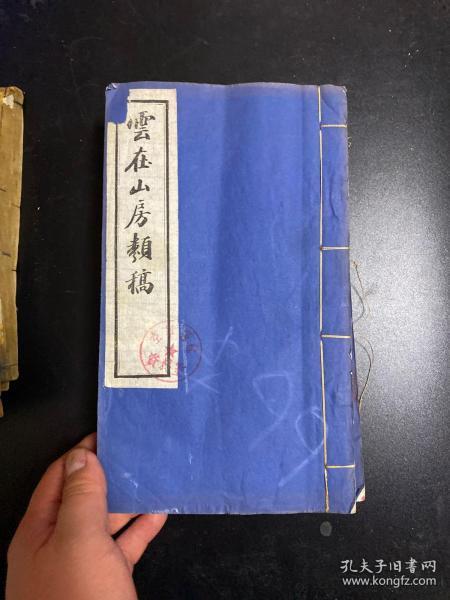 雲在山房類稿
孔夫子旧书网
www.kongfz.com